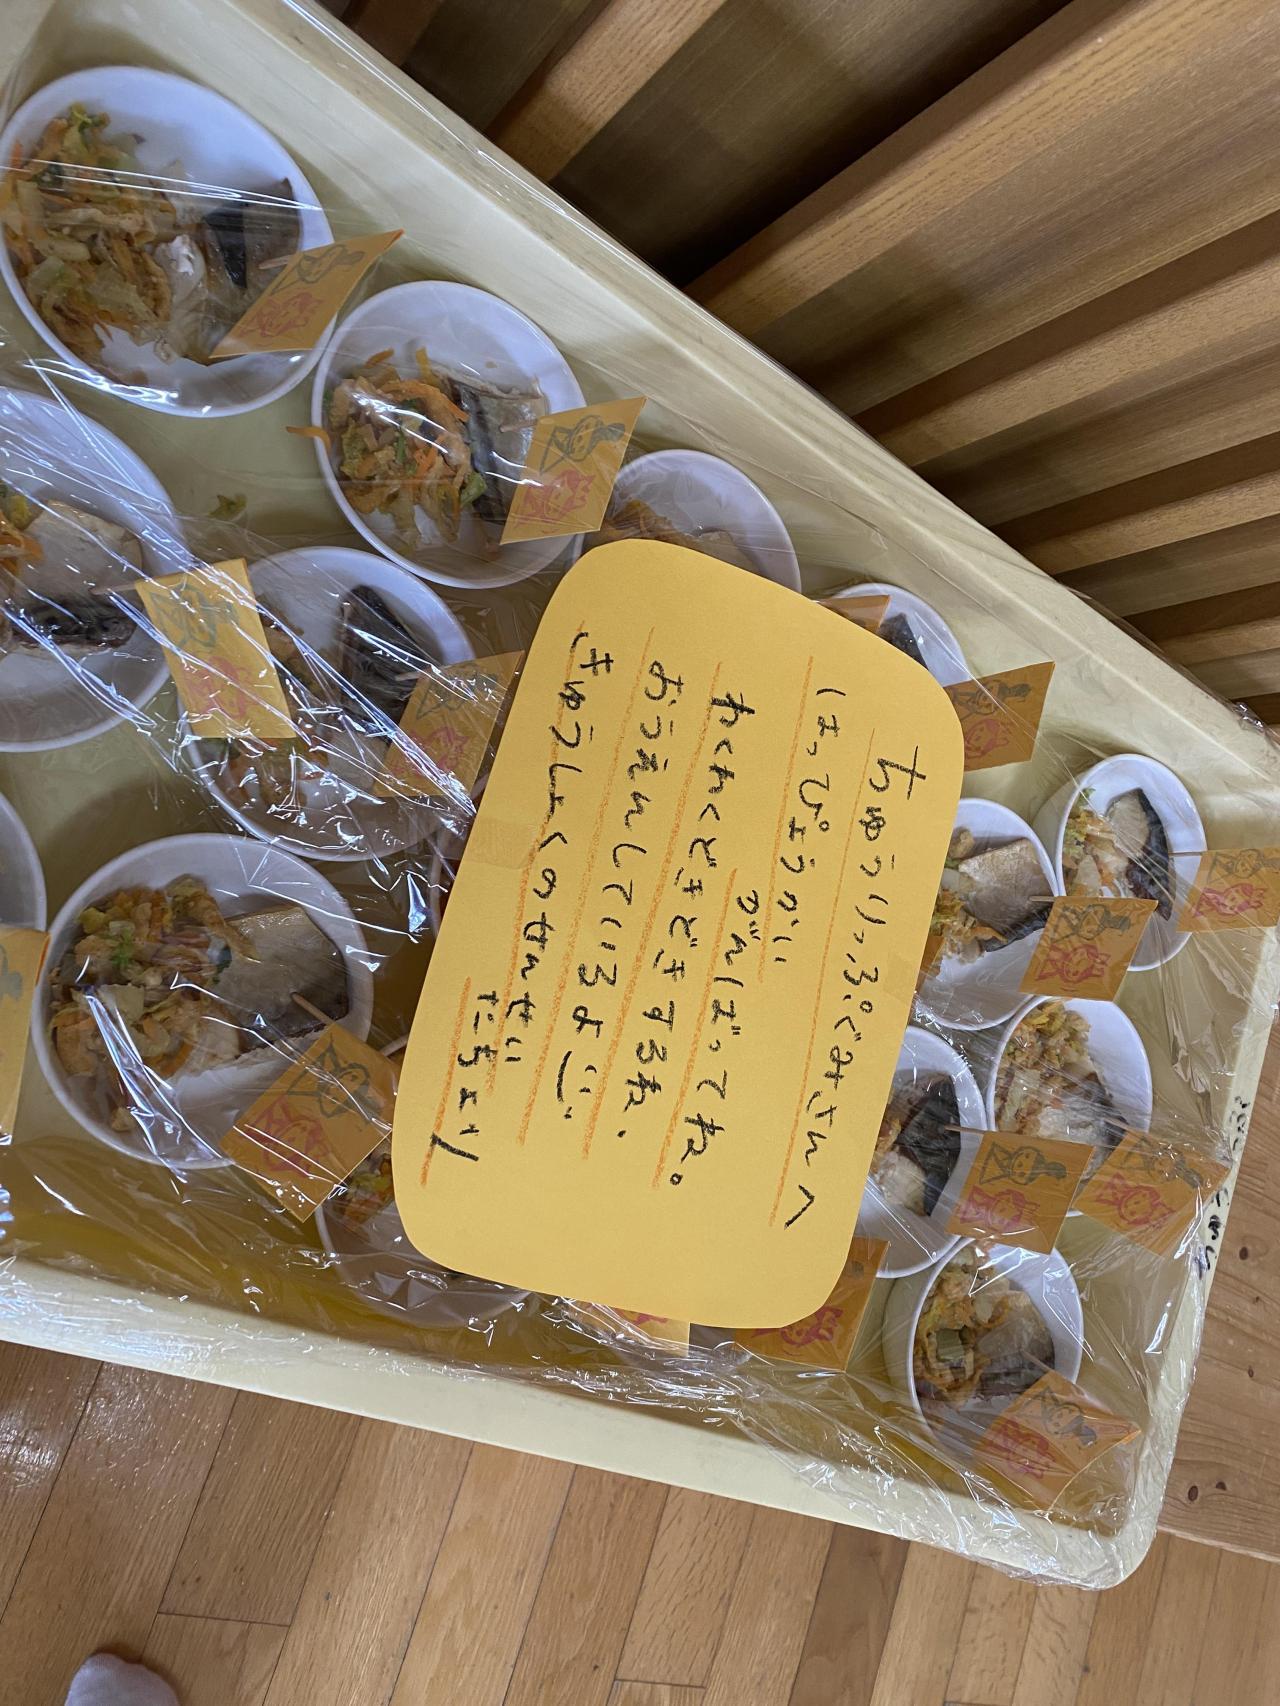 ちゅうりっぷぐみさんへ
はっぴょうかい
がんばってね。
わくわくどきどきするね.
おうえんしているよ
きゅうしょくのせんせい
たちより